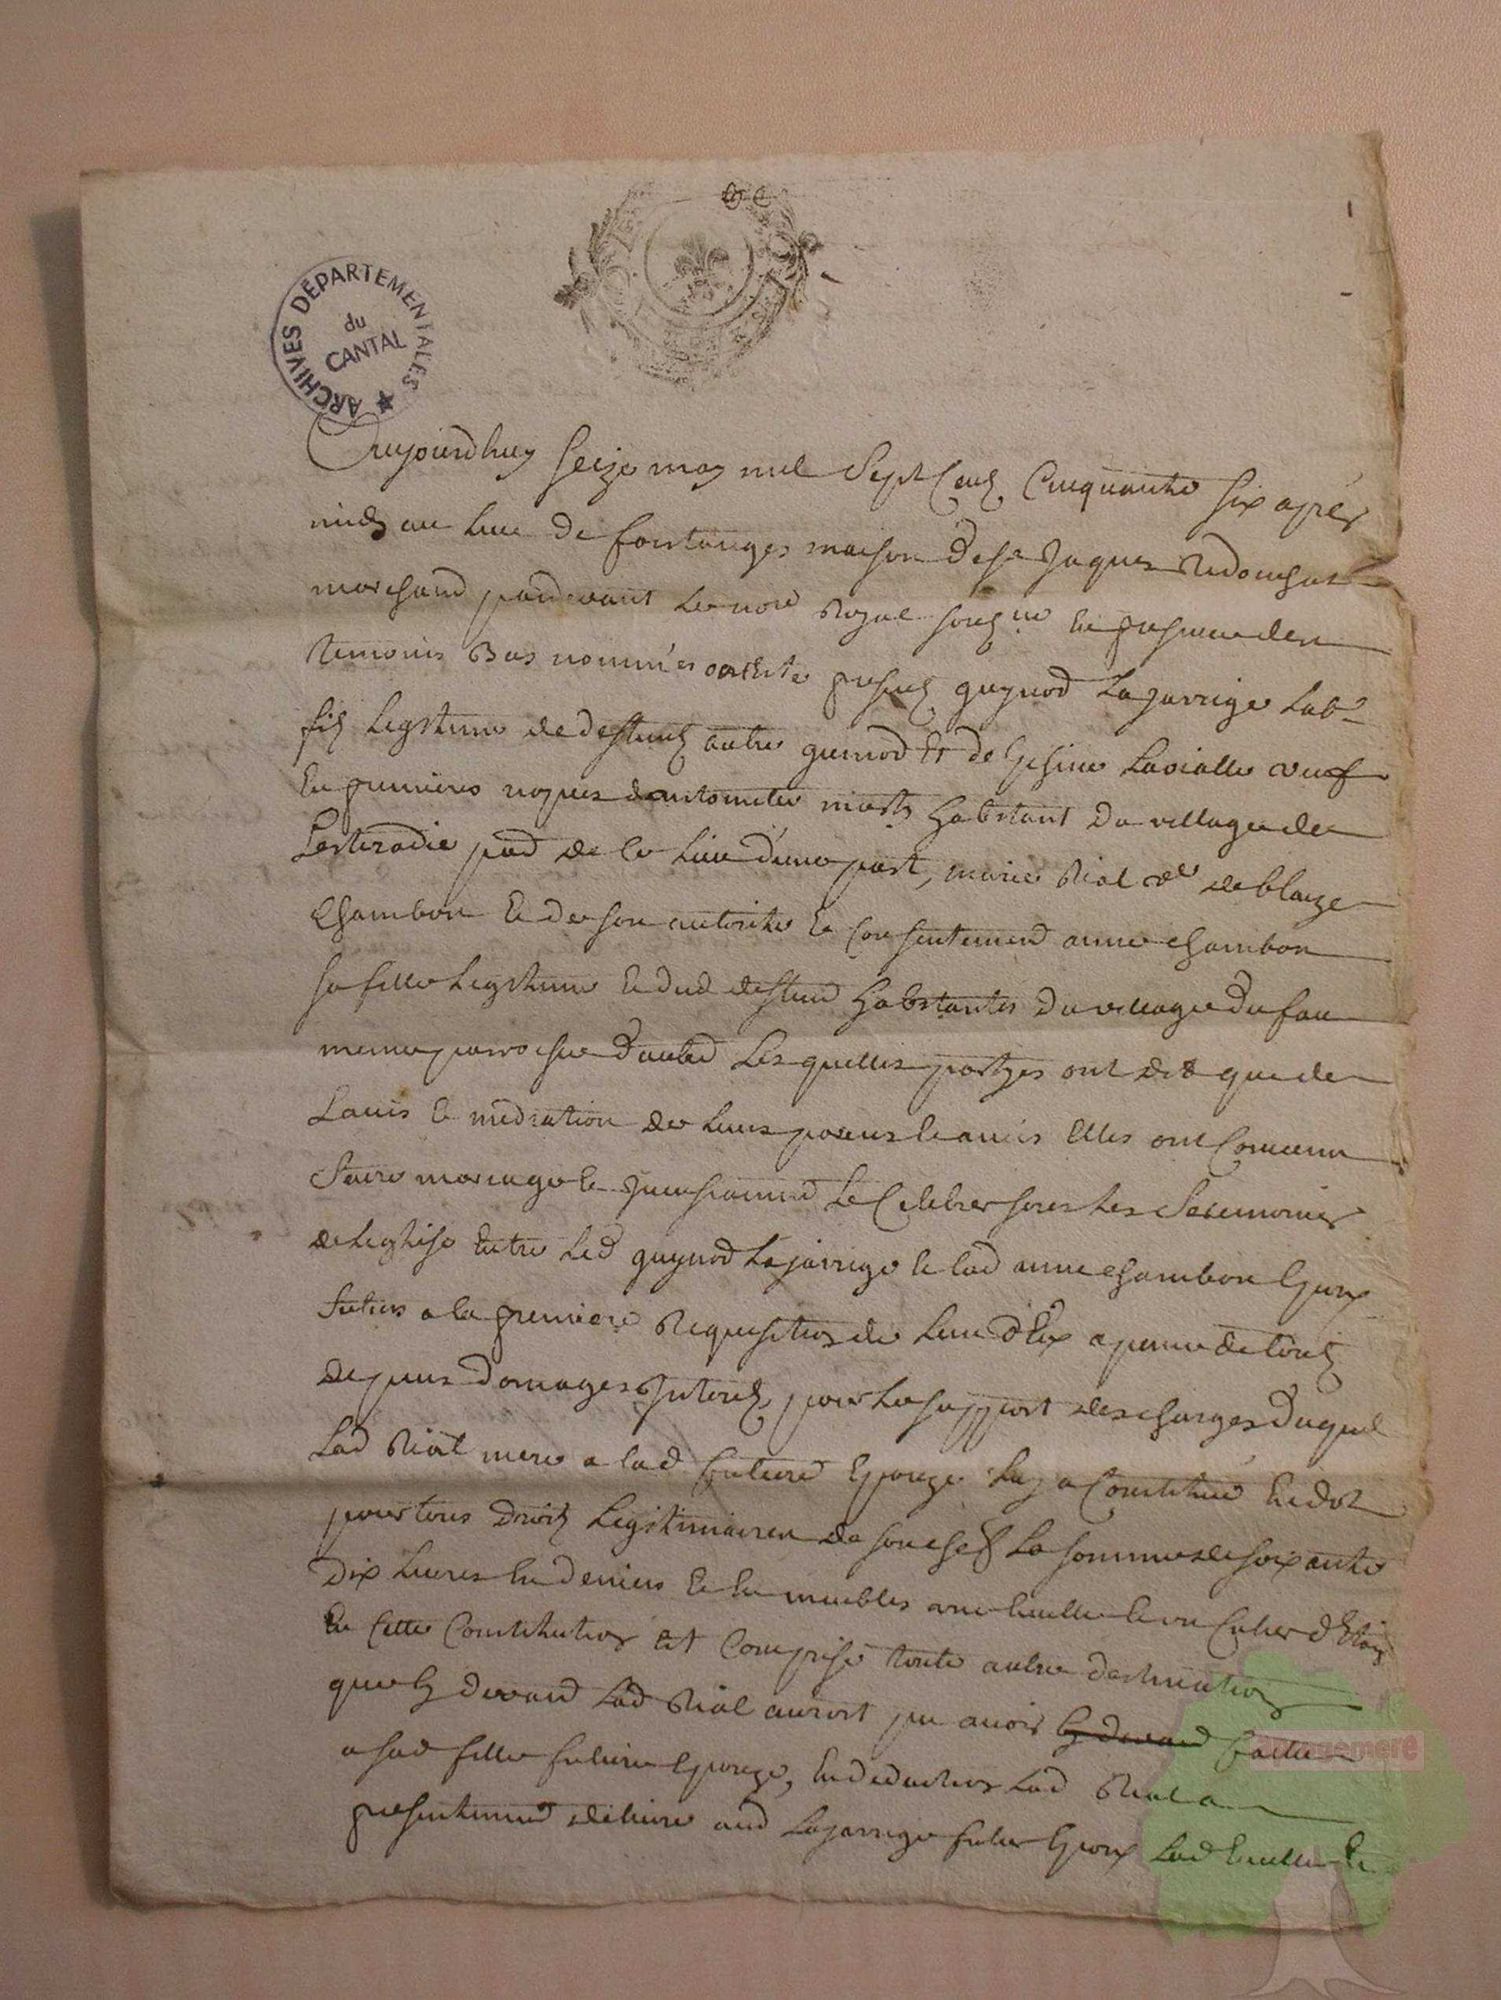 ARCHIVES DÉPARTEMENTALES
du
CANTAL
Aujourdhuy seize may mil sept cens cinquante six apres
midy au lieu de fontanges maison de sr Jaques
marchand pardevant le nore Royal sousne en presence des
temoins bas nommés ont été presens guynod Lajarrige labr
fils legitime de deffunts autre guinod et de Lavialle veuf
en premieres nopces dantoinette habitant du village de
pad de ce lieu d'une part, marie Rial ve de blaize
chambon et de son autorité et consentement anne chambon
sa fille legitime et dud deffunt habitantes du village du fau
meme parroisse dautre Les quelles partyes ont dit que de
Lavis et mediation de leurs parens et amis elles ont convenu
faire mariage et Le Celebrer sous les Seremonies
de leglise entre led guynod Lajarrige et lad anne chambon Epoux
futurs a la premiere Requisition de lun d'Eux a peine de touts
depens domages Interets pour le support des charges duquel
Lad Rial mere a lad future Epouze luy a Constitué en dot
pour tous droits legitimaires de son chef La somme de soixante
dix livres en deniers et en meubles une et un
En Cette Constitution est Comprise toute autre destination
que cy devant Lad Rial auroit pu avoir cy devant faitte
a sad fille future Epouze, En deduction Lad Rial a
presentement delivré aud Lajarrige futur Epoux Lad et
apurgemere